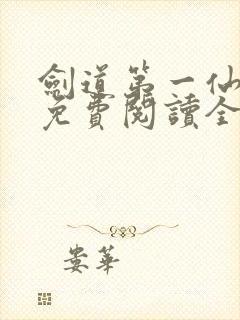 劍道第一仙
免費閱讀全
婁華